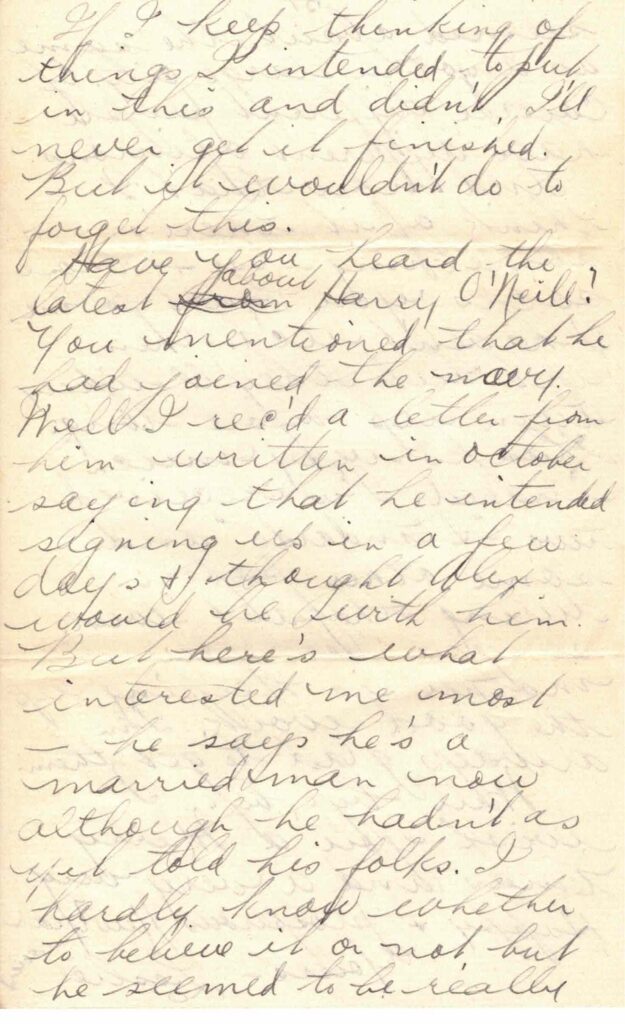 If I keep thinking of
things I intended to put
in this and didn't, I'll
never get it finished.
But it wouldn't do to
forget this.
Have you heard the
latest from about Harry O'Neill?
You mentioned that he
had joined the navy.
Well I rec'd a letter from
him written in october
saying that he intended
signing up in a few
days & thought Alex
would be with him.
But here's what
interested me most
– he says he's a
married man now
although he hadn't as
yet told his folks. I
hardly know whether
to believe it or not but
he seemed to be really